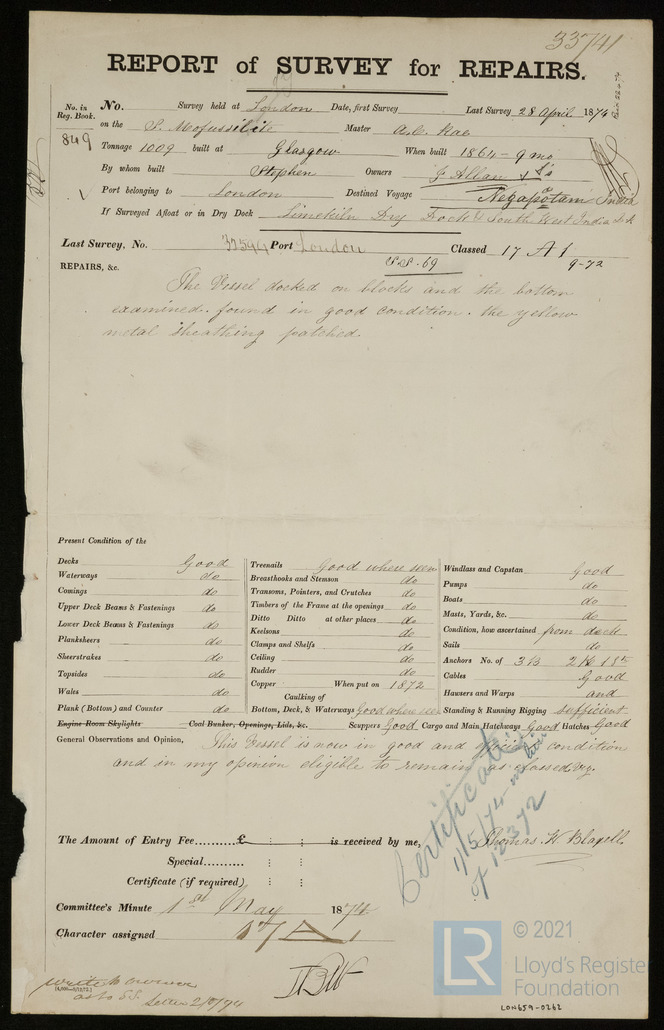 33741
REPORT of SURVEY for REPAIRS.
No. in Reg. Book. No. Survey held at London Date, first Survey Last Survey 28 April 1874
849 on the S. Mofussilite Master A.C. Rae
Tonnage 1009 built at Glasgow When built 1864-9 mo
By whom built Stephen Owners J Allan &
Port belonging to London Destined Voyage Negapatam India
If Surveyed Afloat or in Dry Dock Limekiln Dry Dock & South West India Dk
Last Survey, No. Port London Classed 17 A 1
SS-69 9-72
REPAIRS, &c.
The Vessel docked on blocks and the bottom
examined. found in good condition. the yellow
metal sheathing patched.
Present Condition of the
Decks Good Treenails Good where seen Windlass and Capstan Good
Waterways do Breasthooks and Stemson do Pumps do
Comings do Transoms, Pointers, and Crutches do Boats do
Upper Deck Beams & Fastenings do Timbers of the Frame at the openings do Masts, Yards, &c. do
Lower Deck Beams & Fastenings do Ditto Ditto at other places do Condition, how ascertained from deck
Planksheers do Keelsons do Sails do
Sheerstrakes do Clamps and Shelfs do Anchors No. of 3 B 2 K 1 St
Topsides do Ceiling do Cables Good
Wales do Rudder do Hawsers and Warps and
Plank (Bottom) and Counter do Copper When put on 1872 Standing & Running Rigging sufficient
Caulking of
Bottom, Deck, & Waterways Good where seen
Engine Room Skylights Coal Bunker, Openings, Lids, &c. Scuppers Good Cargo and Main Hatchways Good Hatches Good
General Observations and Opinion, This Vessel is now in good and efficient condition
and in my opinion eligible to remain as classed viz.
Certificate
1/5/74
of 12372
The Amount of Entry Fee..........£ : : is received by me,
Thomas W. Blagell
Special.......... : :
Certificate (if required) : :
Committee's Minute 1st May 1874
Character assigned 17 A 1
write to owner
as to S.S. Letter 2/5/74
© 2021
LR
Lloyd's Register
Foundation
LON659-0262